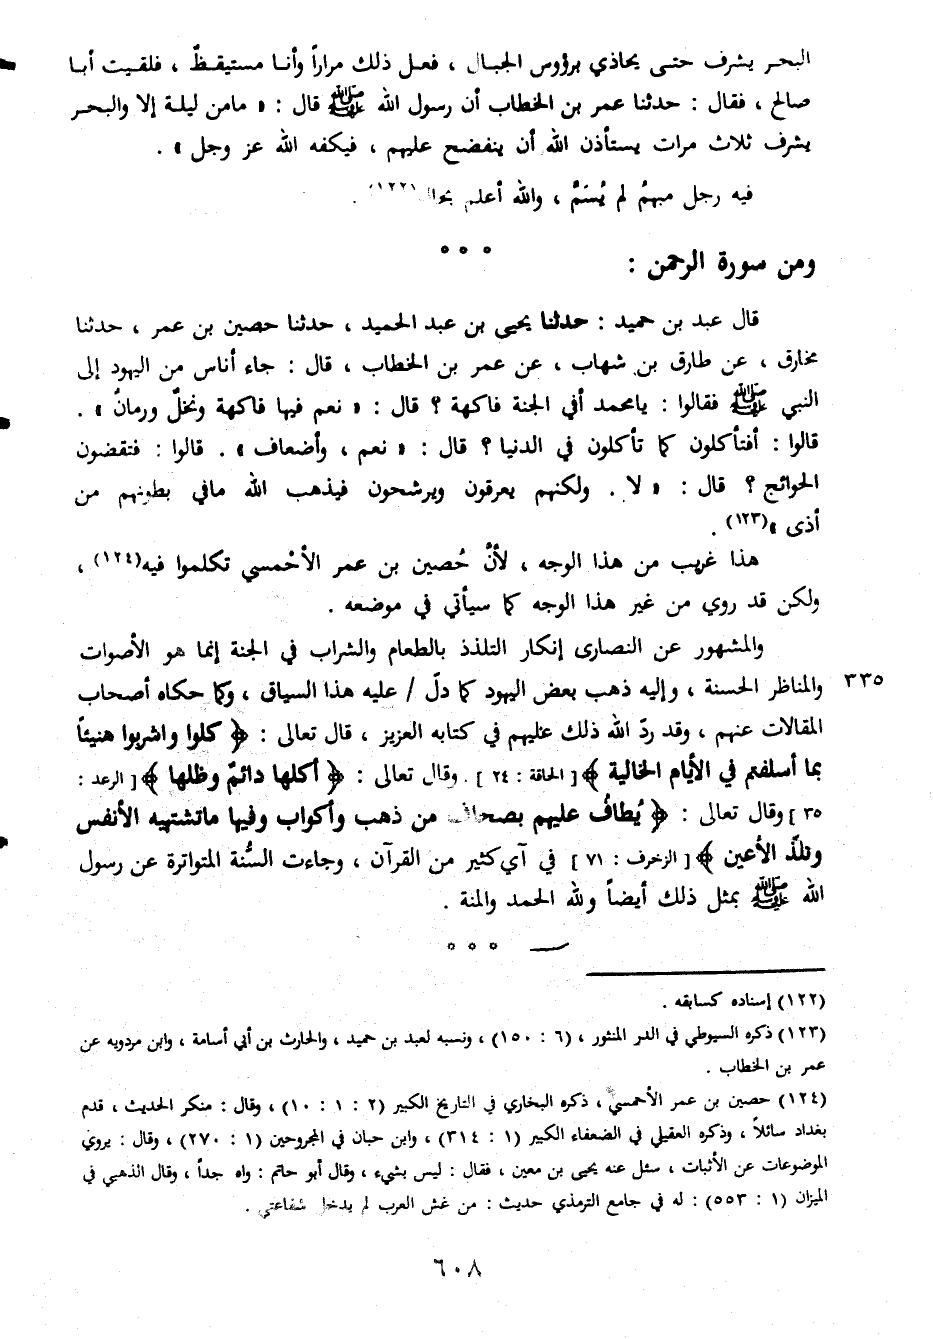 البحر يشرف حتى يحاذي برؤوس الجبال ، فعل ذلك مراراً وأنا مستيقظٌ ، فلقيت أبا
صالح ، فقال : حدثنا عمر بن الخطاب أن رسول الله ﷺ قال : « مامن ليلة إلا والبحر
يشرف ثلاث مرات يستأذن الله أن ينفضح عليهم ، فيكفه الله عز وجل » .
فيه رجل مبهمٌ لم يُسَمَّ ، والله أعلم بحاله (١٢٢) .
ومن سورة الرحمن :
قال عبد بن حميد : حدثنا يحيى بن عبد الحميد ، حدثنا حصين بن عمر ، حدثنا
مخارق ، عن طارق بن شهاب ، عن عمر بن الخطاب ، قال : جاء أناس من اليهود إلى
النبي ﷺ فقالوا : يامحمد أفي الجنة فاكهة ؟ قال : « نعم فيها فاكهة ونخلٌ ورمانٌ » .
قالوا : أفتأكلون كما تأكلون في الدنيا ؟ قال : « نعم ، وأضعاف » . قالوا : فتقضون
الحوائج ؟ قال : « لا . ولكنهم يعرقون ويرشحون فيذهب الله مافي بطونهم من
أذى »(١٢٣) .
هذا غريب من هذا الوجه ، لأنَّ حُصين بن عمر الأحْمسي تكلموا فيه(١٢٤) ،
ولكن قد روي من غير هذا الوجه كما سيأتي في موضعه .
والمشهور عن النصارى إنكار التلذذ بالطعام والشراب في الجنة إنما هو الأصوات
والمناظر الحسنة ، وإليه ذهب بعض اليهود كما دلّ / عليه هذا السياق ، وكما حكاه أصحاب ٣٣٥
المقالات عنهم ، وقد ردّ الله ذلك عليهم في كتابه العزيز ، قال تعالى : ﴿ كلوا واشربوا هنيئاً
بما أسلفتم في الأيام الخالية ﴾ [ الحاقة : ٢٤ ] . وقال تعالى : ﴿ أكلها دائمٌ وظلها ﴾ [ الرعد :
٣٥ ] وقال تعالى : ﴿ يُطافُ عليهم بصحاف من ذهب وأكواب وفيها ماتشتهيه الأنفس
وتلذّ الأعين ﴾ [ الزخرف : ٧١ ] في آي كثير من القرآن ، وجاءت السُّنة المتواترة عن رسول
الله ﷺ بمثل ذلك أيضاً ولله الحمد والمنة .
(١٢٢) إسناده كسابقه .
(١٢٣) ذكره السيوطي في الدر المنثور ، (٦ : ١٥٠) ، ونسبه لعبد بن حميد ، والحارث بن أبي أسامة ، وابن مردويه عن
عمر بن الخطاب .
(١٢٤) حصين بن عمر الأحمسي ، ذكره البخاري في التاريخ الكبير (٢ : ١ : ١٠) ، وقال : منكر الحديث ، قدم
بغداد سائلاً ، وذكره العقيلي في الضعفاء الكبير (١ : ٣١٤) ، وابن حبان في المجروحين (١ : ٢٧٠) ، وقال : يروي
الموضوعات عن الأثبات ، سئل عنه يحيى بن معين ، فقال : ليس بشيء ، وقال أبو حاتم : واه جداً ، وقال الذهبي في
الميزان (١ : ٥٥٣) : له في جامع الترمذي حديث : من غش العرب لم يدخل شفاعتي .
٦٠٨